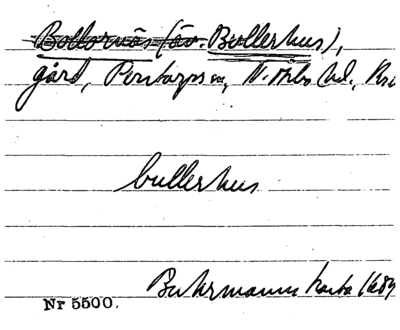 Bollernäs (äv. Bullerhus),
gård, Pentorps sn, N. Möre hd, Kr
bullerhus
Buhrmanns karta 1684
Nr 5500.